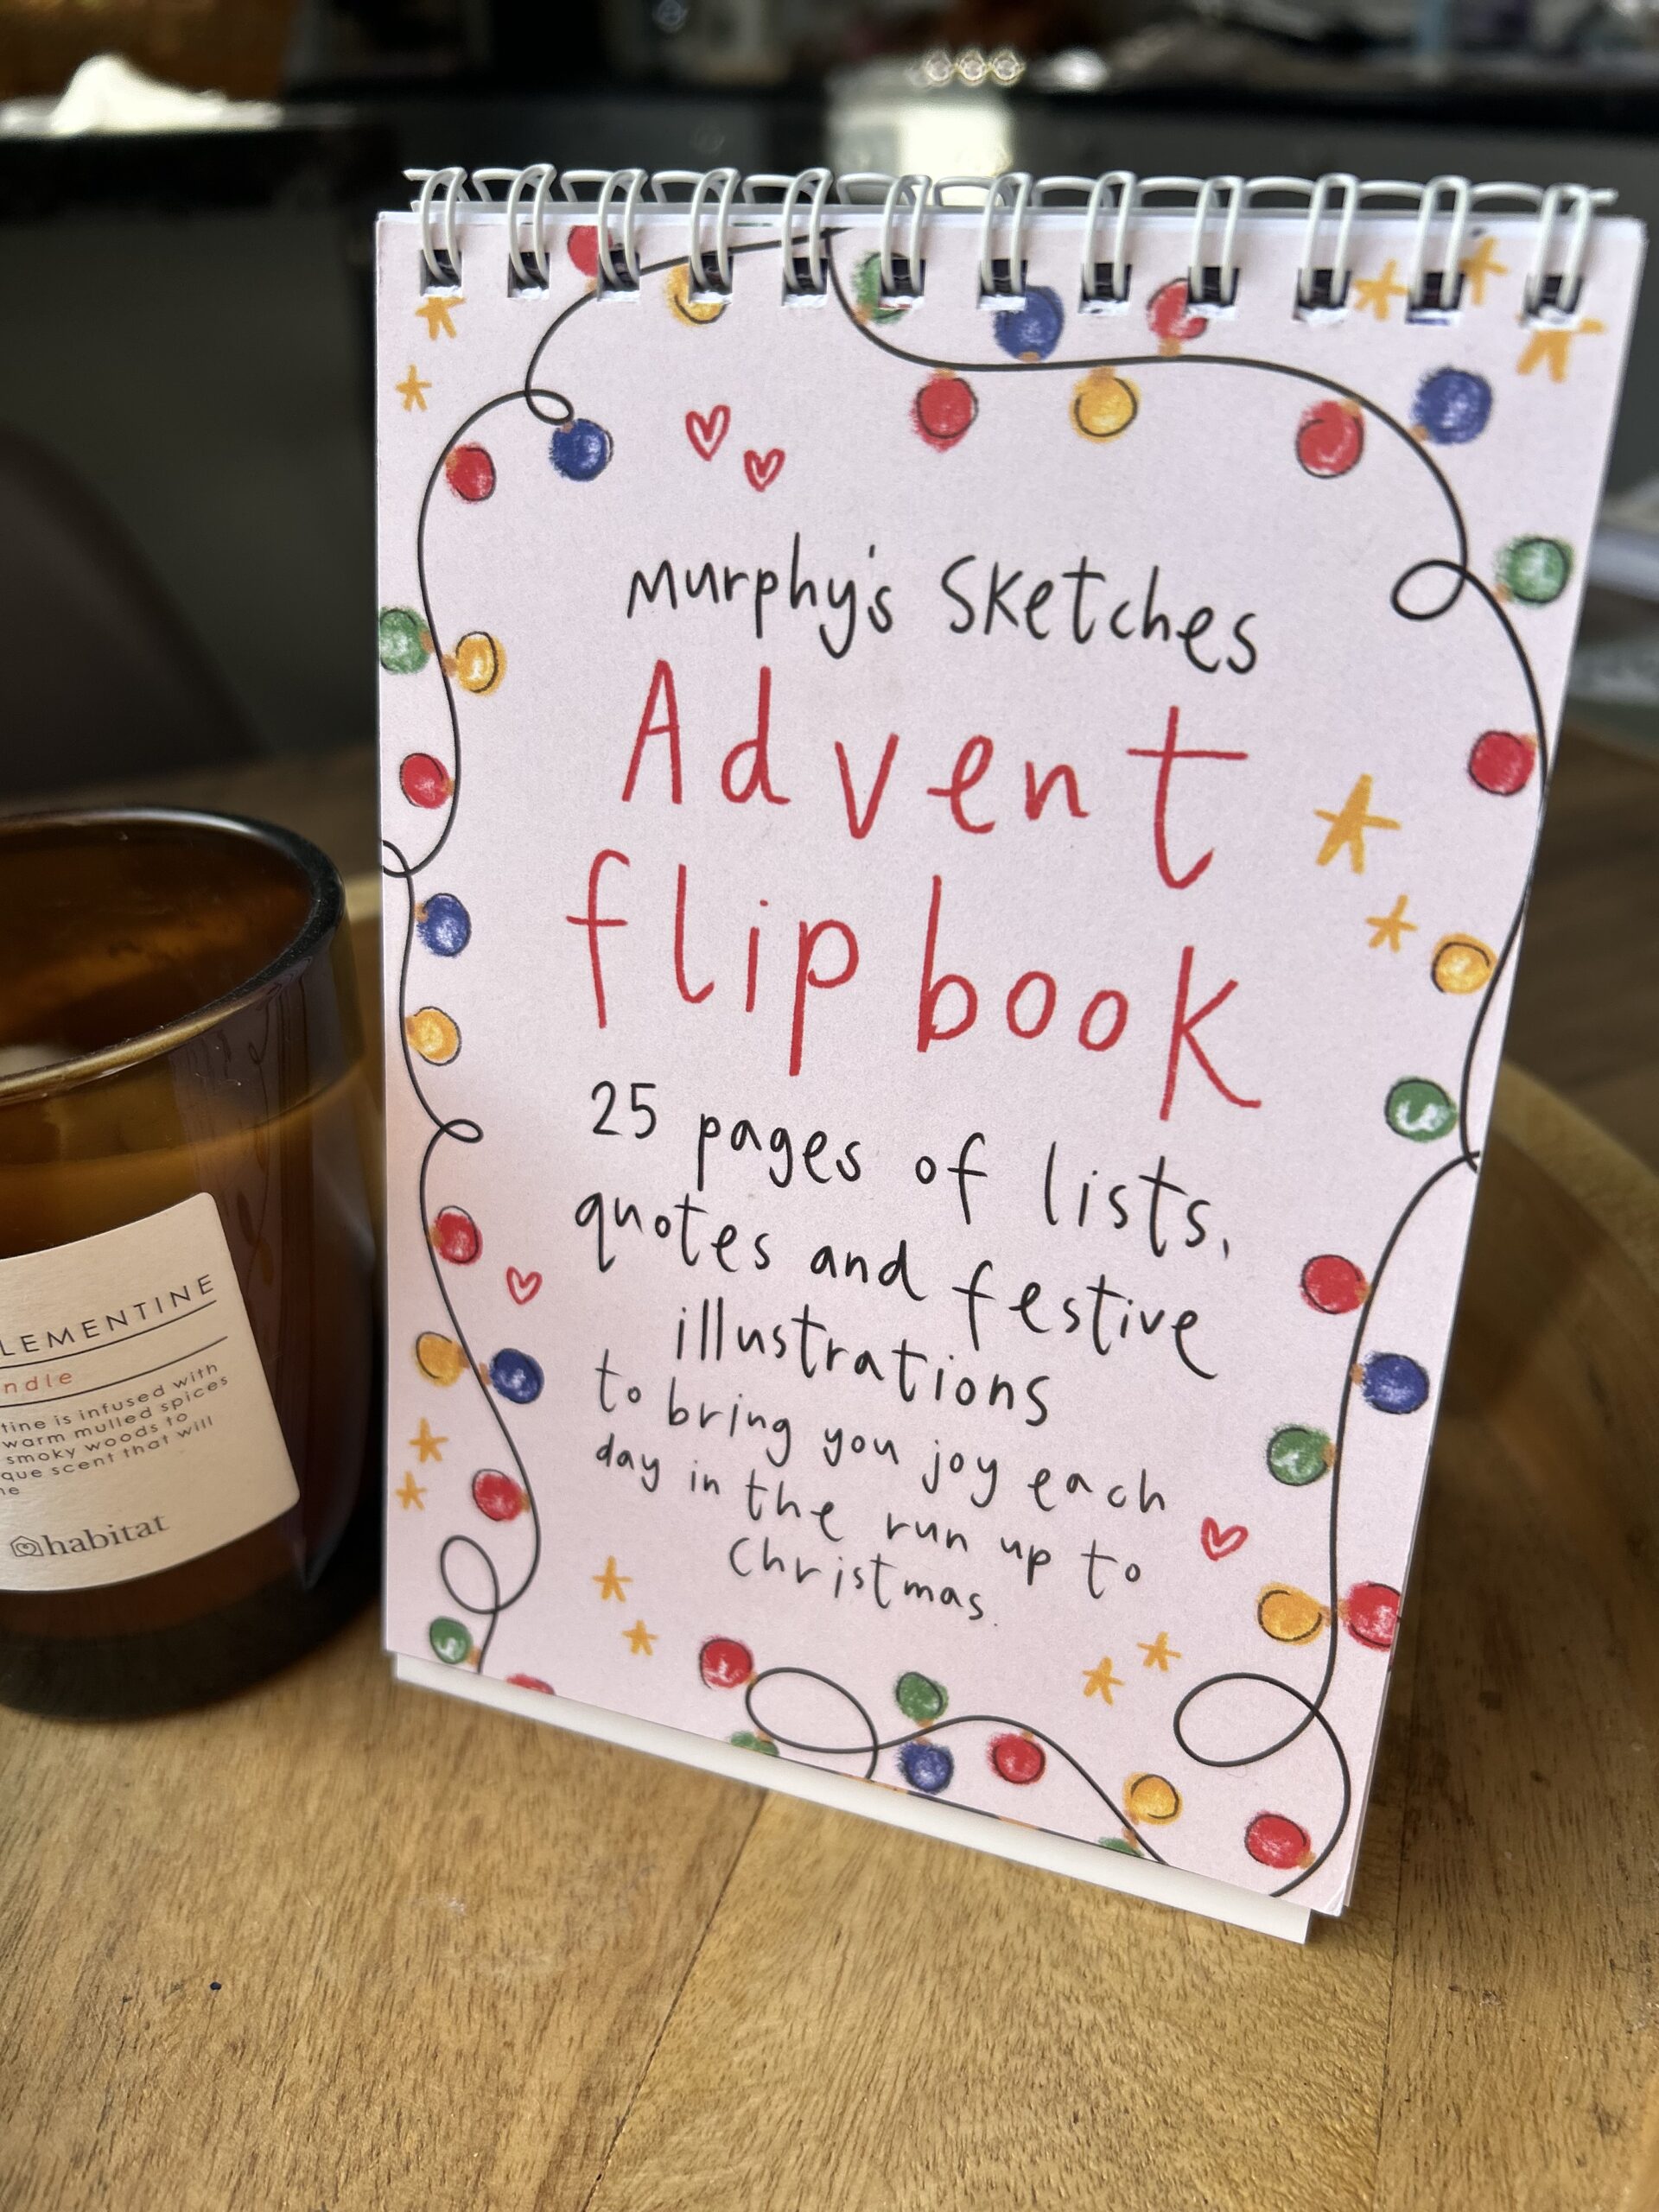 Murphy's Sketches
Advent
flipbook
25 pages of lists,
quotes and festive
illustrations
to bring you joy each
day in the run up to
Christmas.
LEMENTINE
ndle
tine is infused with
warm mulled spices
smoky woods to
que scent that will
ne
habitat